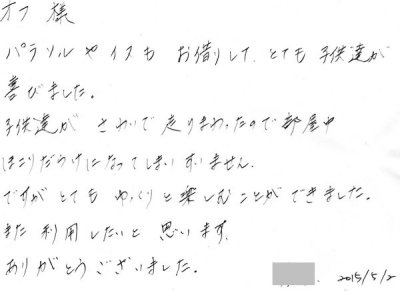 オフ 様
パラソルやイスも お借りして、とても 子供達が
喜びました。
子供達が さわいで 走りまわったので 部屋中
ほこりだらけになってしまいすいません。
ですが とても ゆっくりと楽しむことができました。
また 利用したいと 思います。
ありがとうございました。
2015/5/2